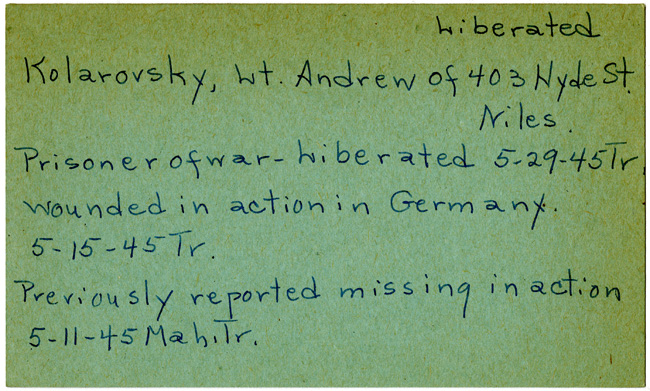 Liberated
Kolarovsky, Lt. Andrew of 403 Hyde St.
Niles.
Prisoner of war - Liberated 5-29-45 Tr.
wounded in action in Germany.
5-15-45 Tr.
Previously reported missing in action
5-11-45 Mah. Tr.